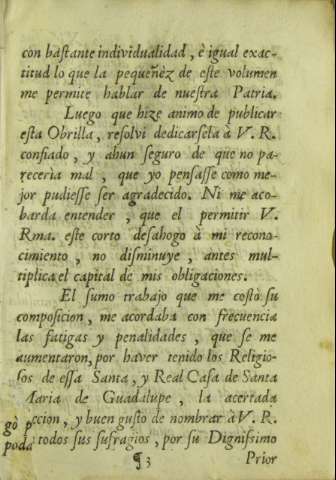 con baſtante individualidad, è igual exac-
titud lo que la pequeñèz de eſte volumen
me permite hablar de nueſtra Patria.
Luego que hize animo de publicar
eſta Obrilla, reſolvi dedicarſela à V. R.
confiado, y ahun ſeguro de que no pa-
receria mal, que yo penſaſſe como me-
jor pudieſſe ſer agradecido. Ni me aco-
barda entender, que el permitir V.
Rma. eſte corto deſahogo à mi recono-
cimiento, no diſminuye, antes mul-
tiplica el capital de mis obligaciones.
El ſumo trabajo que me coſtò ſu
compoſicion, me acordaba con frecuencia
las fatigas y penalidades, que ſe me
aumentaron, por haver tenido los Religio-
ſos de eſſa Santa, y Real Caſa de Santa
Maria de Guadalupe, la acertada
ccion, y buen guſto de nombrar à V. R.
todos ſus ſufragios, por ſu Digniſsimo
gò p
poda
¶ 3
Prior